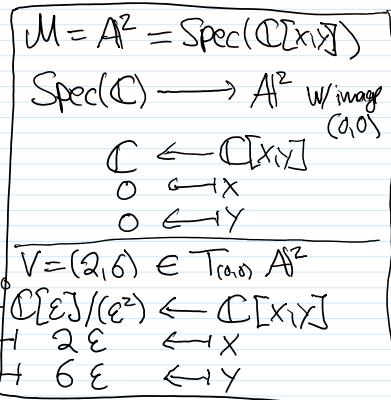 M = A² = Spec(ℂ[x,y])
Spec(ℂ) ⟶ A² w/ image
(0,0)
ℂ ⟵ ℂ[x,y]
0 ↤ x
0 ↤ y
V = (2,6) ∈ T₍₀,₀₎ A²
ℂ[ε]/(ε²) ⟵ ℂ[x,y]
2ε ↤ x
6ε ↤ y